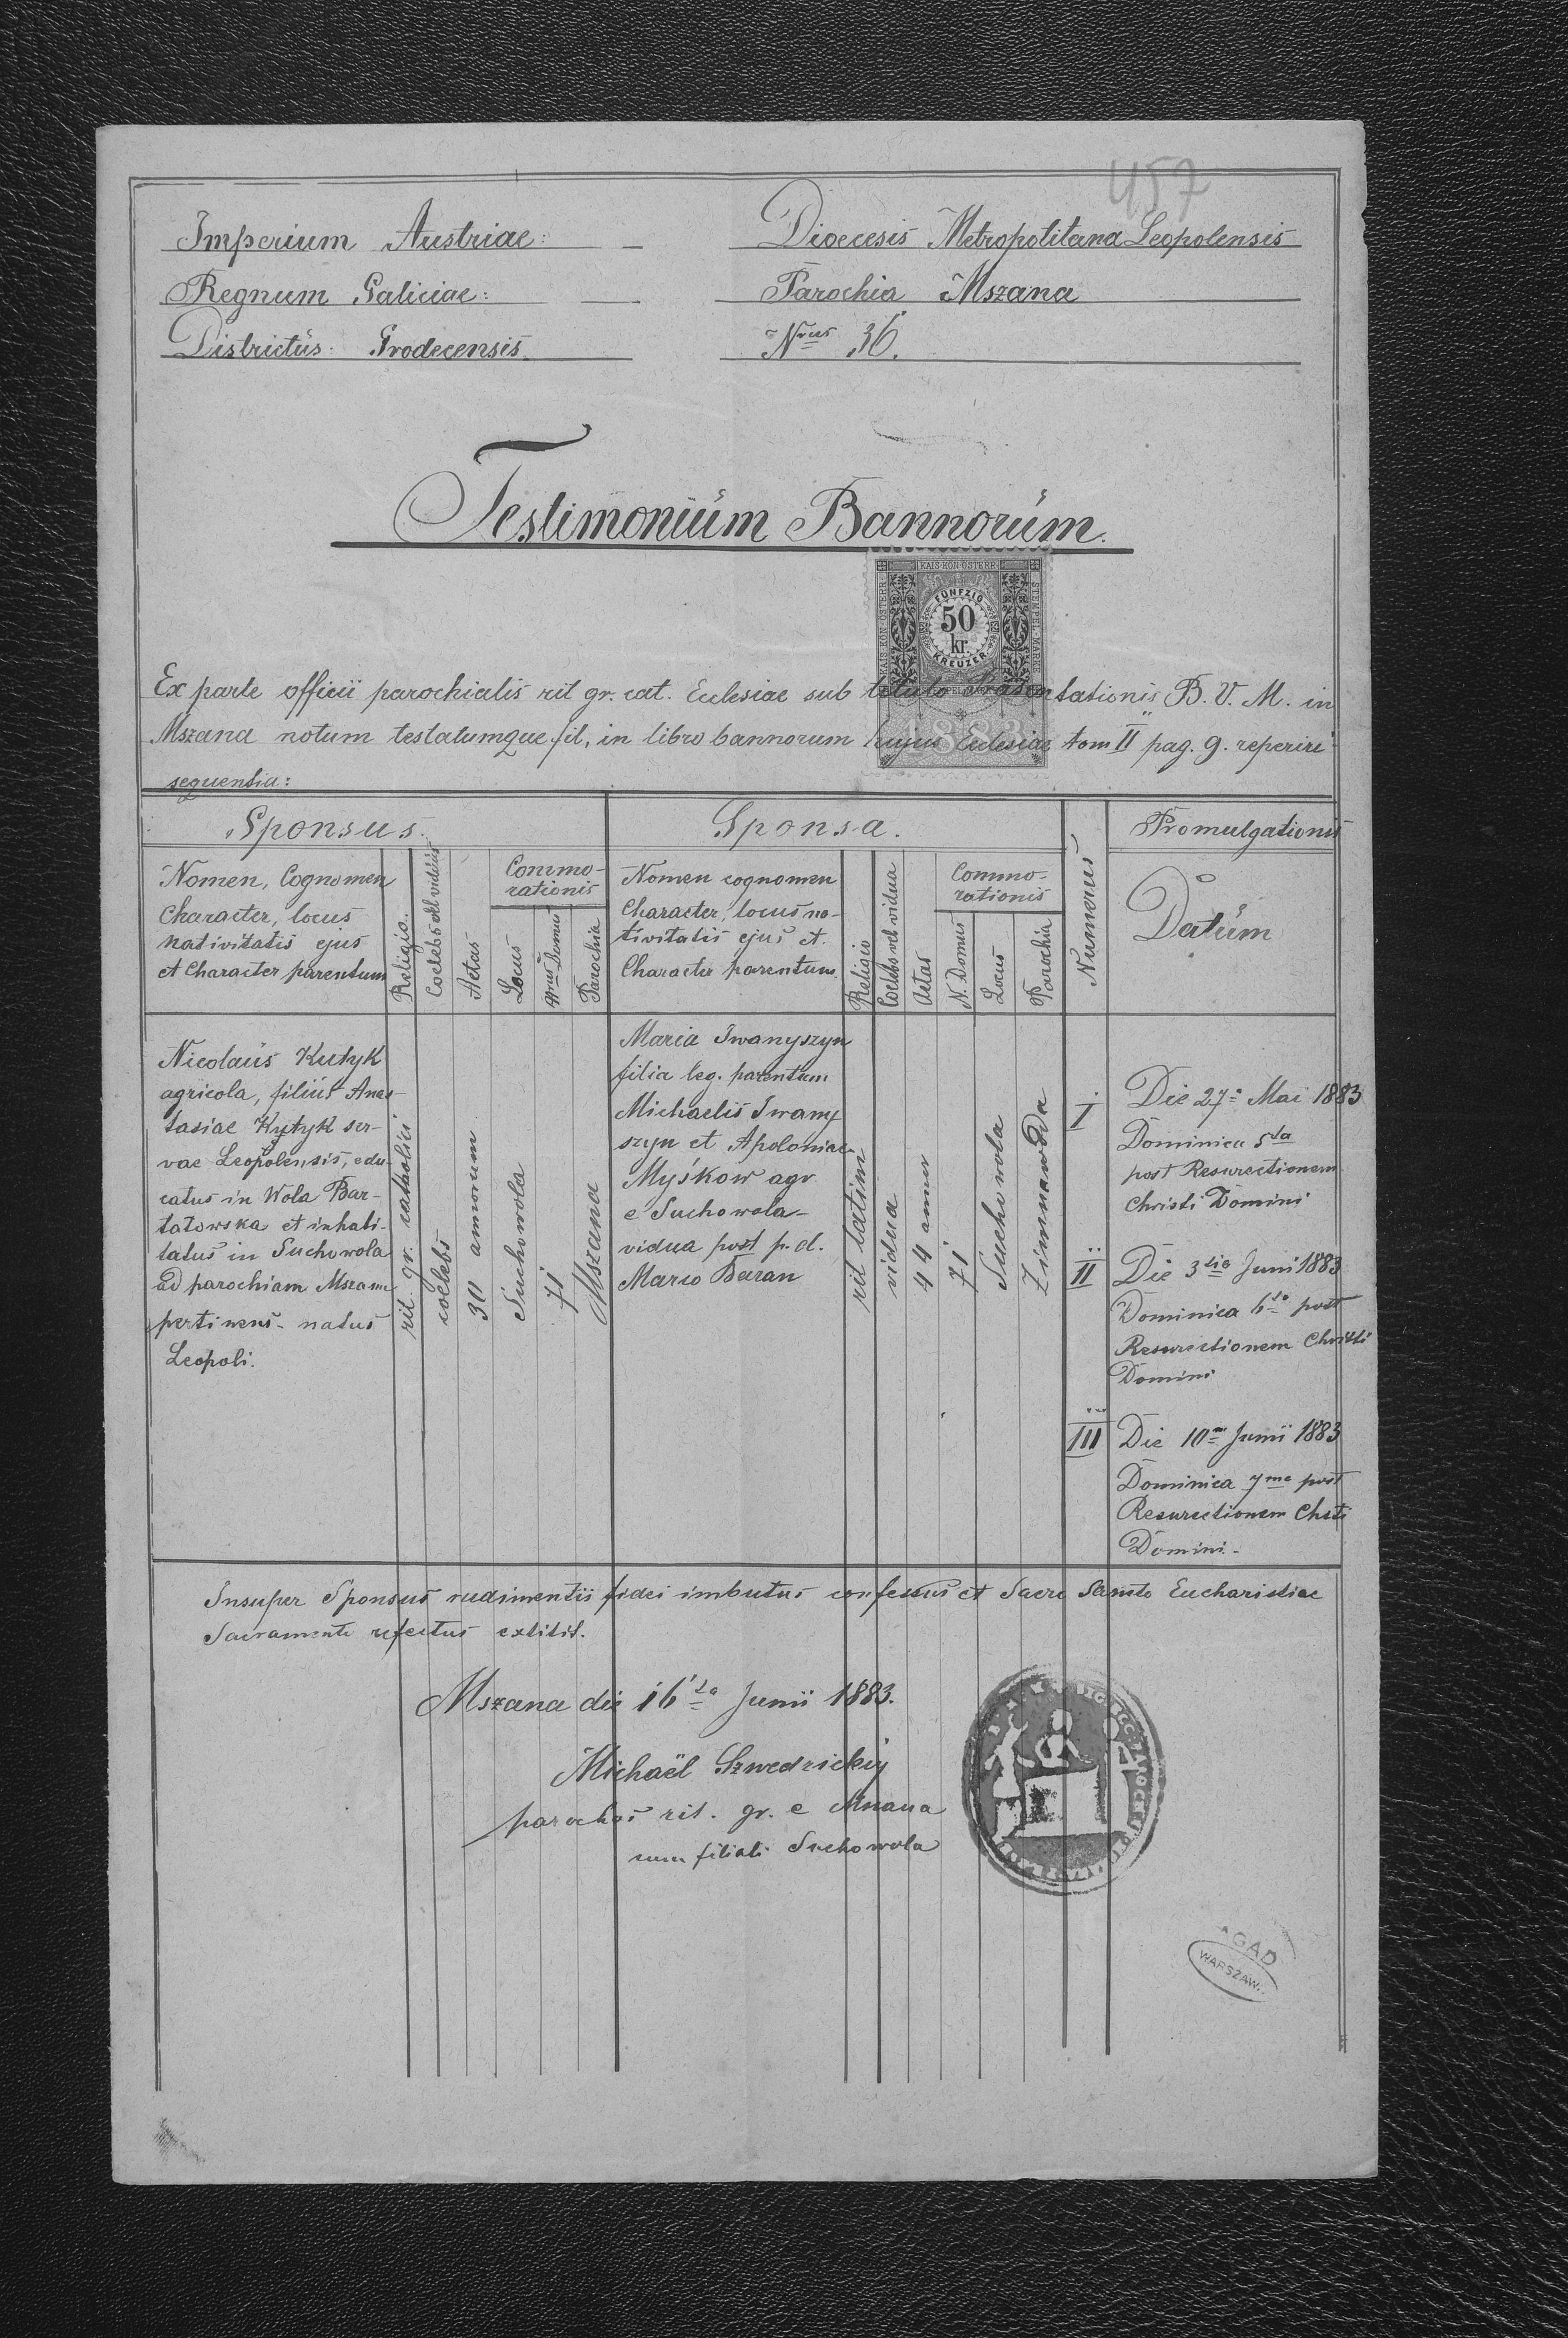 457
Imperium Austriae:
Regnum Galiciae:
Districtus: Grodecensis.
Dioecesis Metropolitana Leopolensis
Parochia Mszana
Nrus 36.
Testimonium Bannorum.
KAIS. KÖN. ÖSTERR.
KAIS. KÖN. ÖSTERR.
STEMPEL-MARKE
FÜNFZIG
50
kr.
KREUZER
1883
Ex parte officii parochialis rit gr. cat. Eclesiae sub titulo Präsentationis B. V. M. in
Mszana notum testatumque fit, in libro bannorum hujus Eclesiae tom II pag. 9. reperiri
sequentia:
Sponsus.
Nomen, Cognomen
Character, locus
nativitatis ejus
et Character parentum
Religio.
Coelebs vel viduus
Aetas
Commo-
rationis
Locus
Nrus Domus
Parochia
Sponsa.
Nomen cognomen
Character, locus na-
tivitatis ejus et
Character parentum
Religio
Coelebs vel vidua
Aetas
Commo-
rationis
N. Domus
Locus
Parochia
Numerus
Promulgationis
Datum
Nicolaus Kutyk
agricola, filius Anas-
tasiae Kytyk ser-
vae Leopolensis, edu-
catus in Wola Bar-
tatowska et inhabi-
tatus in Suchowola
ad parochiam Mszana
pertinens - natus
Leopoli.
rit. gr. catholici
coelebs
30 annorum
Suchowola
71
Mszana
Maria Iwanyszyn
filia leg. parentum
Michaelis Iwany
szyn et Apoloniae
Myśkow agr
e Suchowola -
vidua post p. d.
Marco Baran
rit latini
vidua
44 annor
71
Suchowola
Zimnawoda
I
Die 27a Mai 1883
Dominica 5ta
post Resurectionem
Christi Domini
II
Die 3tia Juni 1883
Dominica 6ta post
Resurectionem Christi
Domini
III
Die 10ma Junii 1883
Dominica 7ma post
Resurectionem Chsti
Domini -
Insuper Sponsus rudimentii fidei imbutus confessus et Sacro Santo Eucharistiae
Sacramento refectus extitit.
Mszana die 16ta Junii 1883.
Michaël Szwedzickij
parochus rit. gr. e Mszana
cum filiali Suchowola
AGAD
WARSZAW